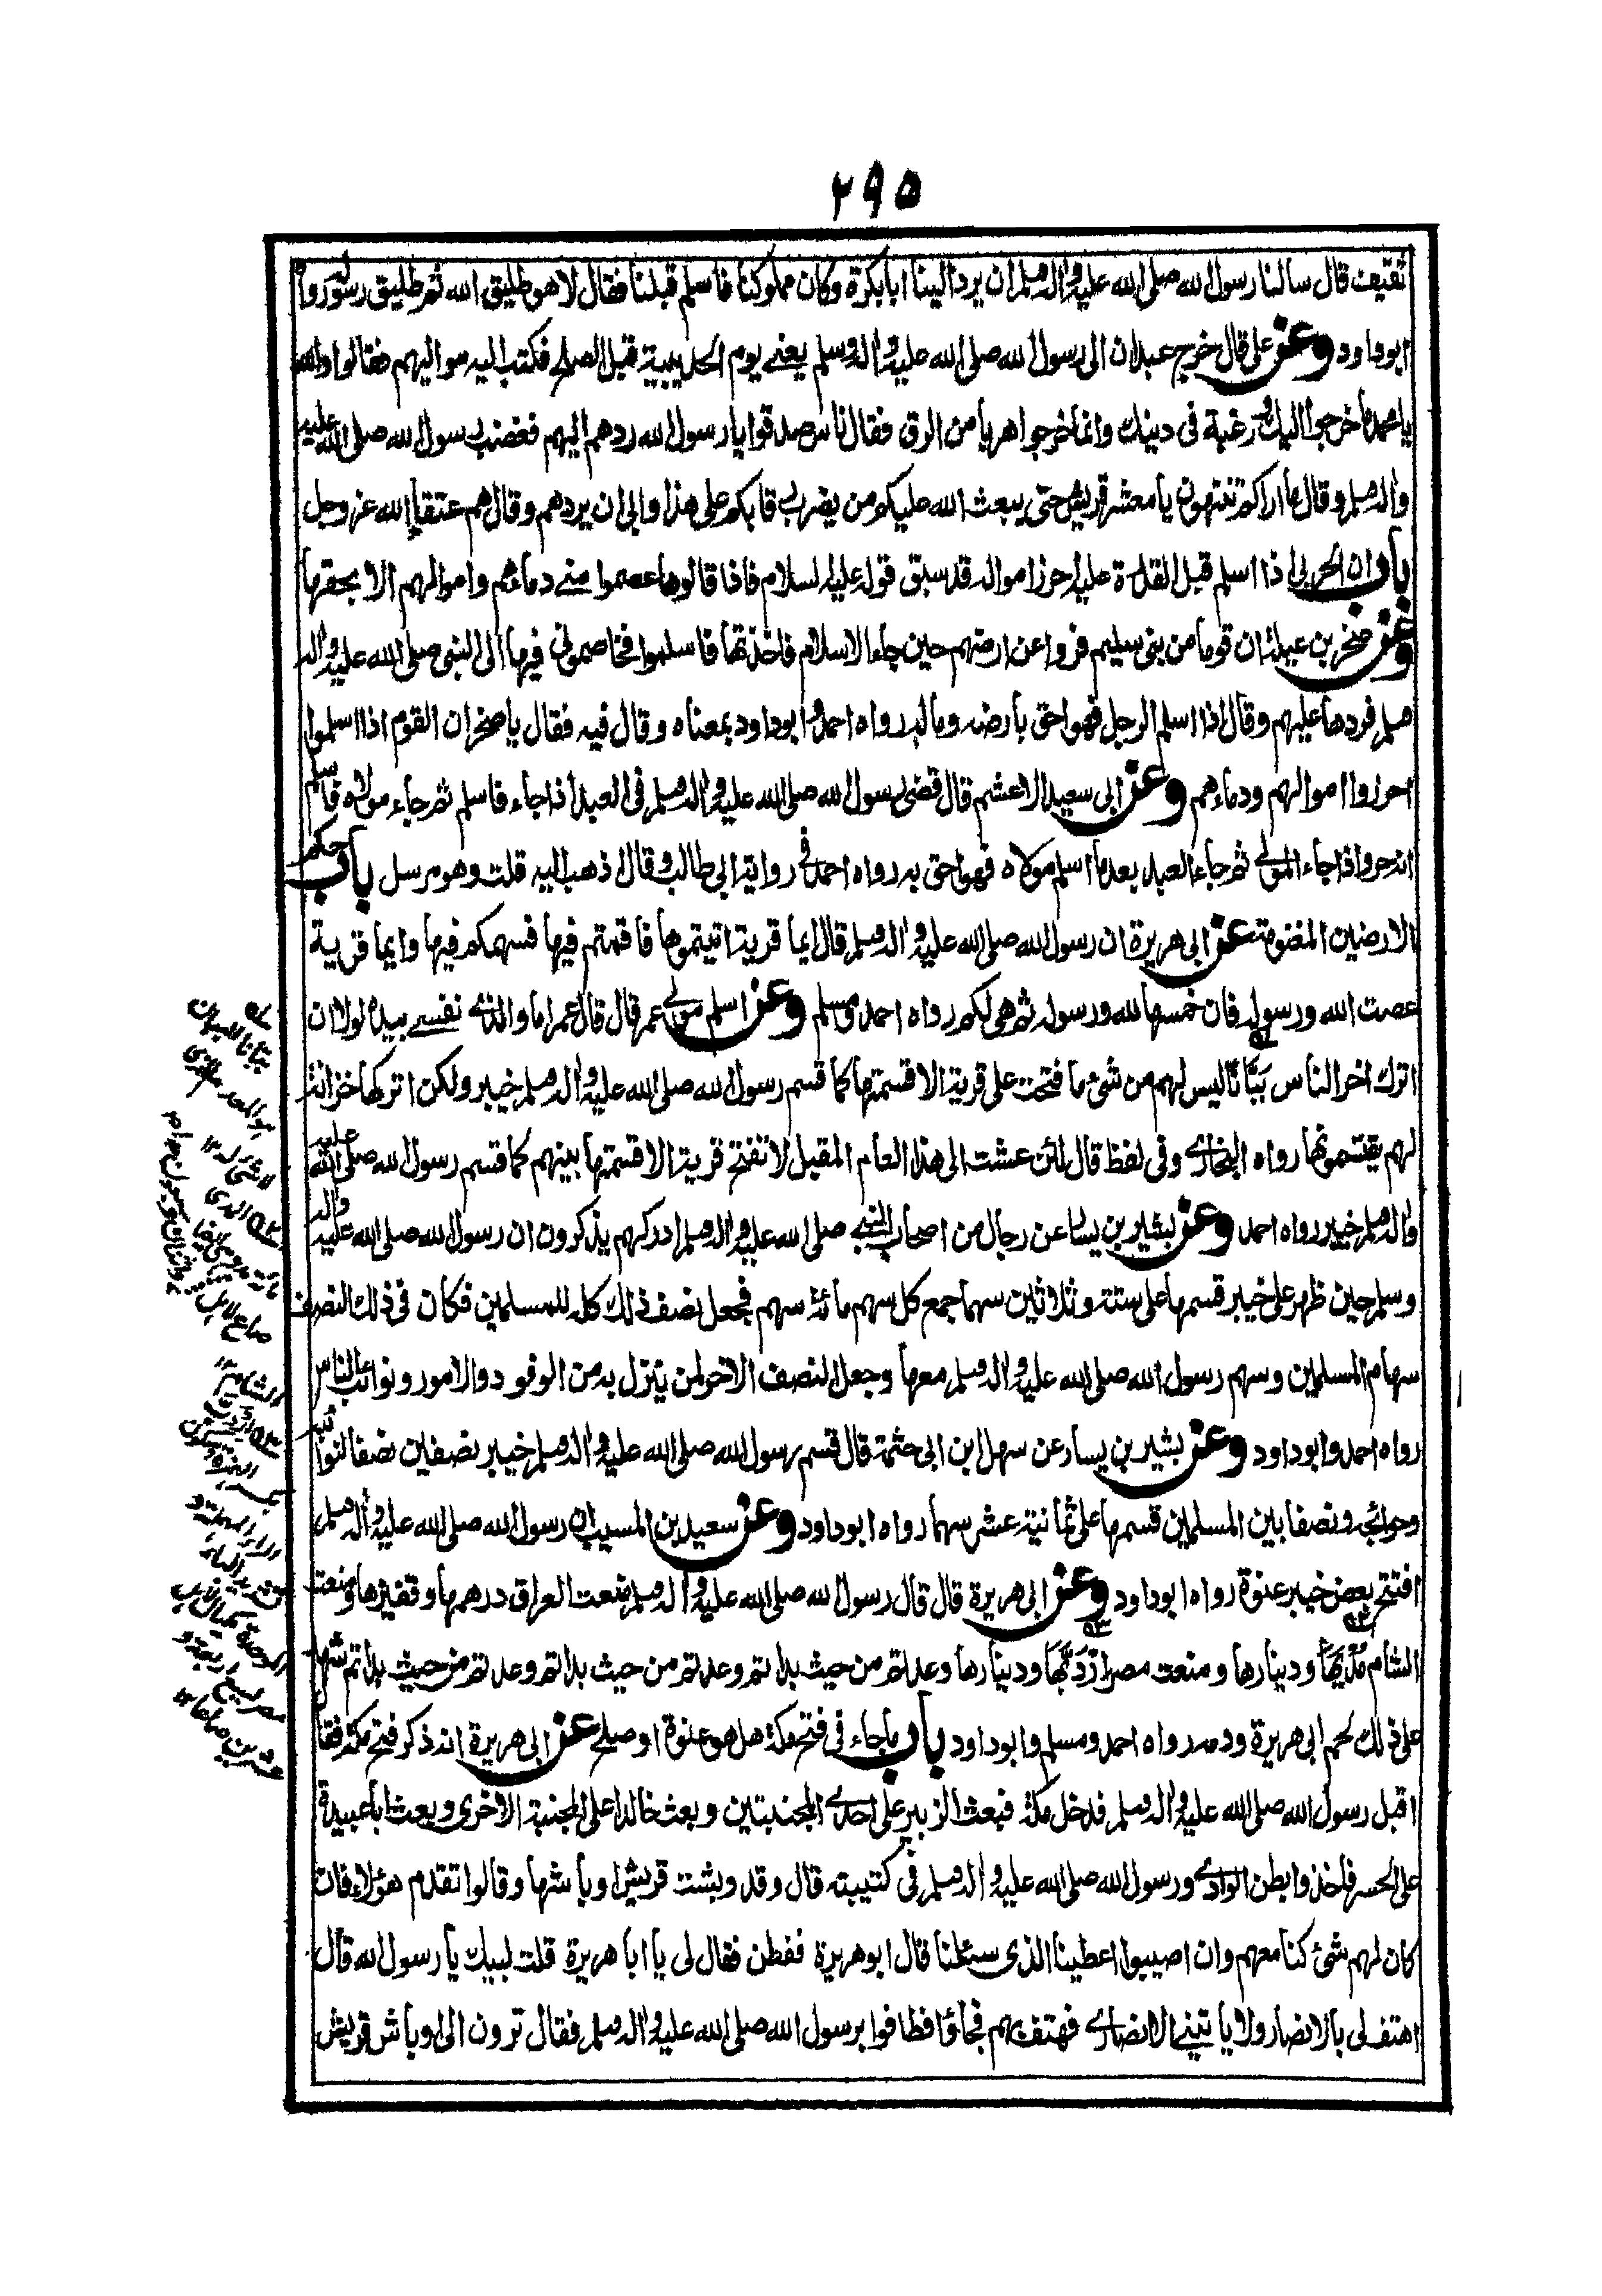 ٢٩٥
ثقيف قال سالنا رسول الله صلى الله عليه واله وسلم ان يرد الينا ابا بكرة وكان مملوكنا فاسلم قبلنا فقال لا هو طليق الله ثم طليق رسوله رواه
ابوداود وعن على قال خرج عبدان الى رسول الله صلى الله عليه واله وسلم يعنى يوم الحديبية قبل الصلح فكتب اليه مواليهم فقالوا والله
يا محمد ما خرجوا اليك رغبة فى دينك وانما خرجوا هربا من الرق فقال ناس صدقوا يا رسول الله ردهم اليهم فغضب رسول الله صلى الله عليه
واله وسلم وقال ما اراكم تنتهون يا معشر قريش حتى يبعث الله عليكم من يضرب رقابكم على هذا وابى ان يردهم وقال هم عتقاء الله عز وجل
باب ان الحربى اذا اسلم قبل القدرة عليه احرز امواله قد سبق قوله عليه السلام فاذا قالوها عصموا منى دماءهم واموالهم الا بحقها
وعن صخر بن عيلة ان قوما من بنى سليم فروا عن ارضهم حين جاء الاسلام فاخذتها فاسلموا فخاصمونى فيها الى النبى صلى الله عليه واله
وسلم فردها عليهم وقال اذا اسلم الرجل فهو احق بارضه وماله رواه احمد وابوداود بمعناه وقال فيه فقال يا صخر ان القوم اذا اسلموا
احرزوا اموالهم ودماءهم وعن ابى سعيد الاعشم قال قضى رسول الله صلى الله عليه واله وسلم فى العبد اذا جاء فاسلم ثم جاء مولاه فاسلم
انه حر واذا جاء المولى ثم جاء العبد بعد ما اسلم مولاه فهو احق به رواه احمد فى رواية ابى طالب وقال اذهب اليه قلت وهو مرسل باب حكم
الارضين المغنومة عن ابى هريرة ان رسول الله صلى الله عليه واله وسلم قال ايما قرية اتيتموها فاقمتم فيها فسهمكم فيها وايما قرية
عصت الله ورسوله فان خمسها لله ورسوله ثم هى لكم رواه احمد ومسلم وعن اسلم مولى عمر قال قال عمر اما والذى نفسى بيده لولا ان
اترك اخر الناس ببانا ليس لهم من شئ ما فتحت على قرية الا قسمتها كما قسم رسول الله صلى الله عليه واله وسلم خيبر ولكن اتركها خزانة
لهم يقتسمونها رواه البخارى وفى لفظ قال لئن عشت الى هذا العام المقبل لا تفتح قرية الا قسمتها بينهم كما قسم رسول الله صلى الله عليه
واله وسلم خيبر رواه احمد وعن بشير بن يسار عن رجال من اصحاب النبى صلى الله عليه واله وسلم ادركهم يذكرون ان رسول الله صلى الله عليه واله
وسلم حين ظهر على خيبر قسمها على ستة وثلاثين سهما جمع كل سهم مائة سهم فجعل نصف ذلك كله للمسلمين فكان فى ذلك النصف
سهام المسلمين وسهم رسول الله صلى الله عليه واله وسلم معها وجعل النصف الاخر لمن ينزل به من الوفود والامور ونوائب الناس
رواه احمد وابوداود وعن بشير بن يسار عن سهل ابن ابى حثمة قال قسم رسول الله صلى الله عليه واله وسلم خيبر نصفين نصفا لنوائبه
وحوائجه ونصفا بين المسلمين قسمها على ثمانية عشر سهما رواه ابوداود وعن سعيد بن المسيب ان رسول الله صلى الله عليه واله وسلم
افتتح بعض خيبر عنوة رواه ابوداود وعن ابى هريرة قال قال رسول الله صلى الله عليه واله وسلم منعت العراق درهمها وقفيزها ومنعت
الشام مديها ودينارها ومنعت مصر اردبها ودينارها وعدتم من حيث بداتم وعدتم من حيث بداتم وعدتم من حيث بداتم شهد
على ذلك لحم ابى هريرة ودمه رواه احمد ومسلم وابوداود باب ما جاء فى فتح مكة هل هو عنوة او صلح عن ابى هريرة انه ذكر فتح مكة فقال
اقبل رسول الله صلى الله عليه واله وسلم فدخل مكة فبعث الزبير على احدى المجنبتين وبعث خالدا على المجنبة الاخرى وبعث ابا عبيدة
على الحسر فاخذوا بطن الوادى ورسول الله صلى الله عليه واله وسلم فى كتيبته قال وقد وبشت قريش اوباشها وقالوا نقدم هؤلاء فان
كان لهم شئ كنا معهم وان اصيبوا اعطينا الذى سئلنا قال ابو هريرة ففطن فقال لى يا ابا هريرة قلت لبيك يا رسول الله قال
اهتف لى بالانصار ولا ياتينى الا انصارى فهتف بهم فجاؤا فطافوا برسول الله صلى الله عليه واله وسلم فقال ترون الى اوباش قريش